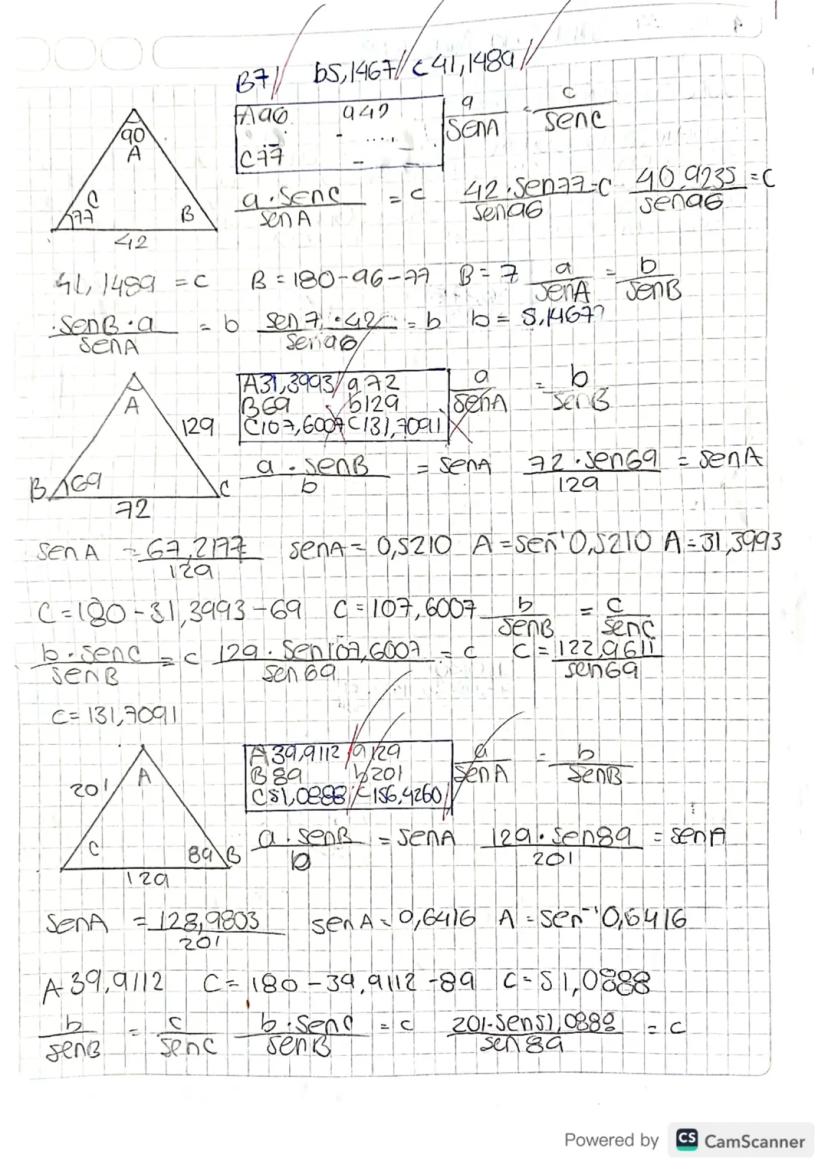 B7 b5,1467 c41,1489
A96 a42
C77
a/senA = c/senC
90
A
C
77
B
42
a·senC/senA = c 42·sen77/sen96 = c 40,9235/sen96 = c
41,1489 = c B = 180-96-77 B = 7 a/senA = b/senB
·senB·a/senA = b sen7·42/sen96 = b b = 5,1467
A
129
B
69
C
72
A31,3993 a72
B69 b129
C107,6007 c131,7091
a/senA = b/senB
a·senB/b = senA 72·sen69/129 = senA
senA = 67,2177/129 senA = 0,5210 A = sen⁻¹0,5210 A = 31,3993
C = 180-31,3993-69 C = 107,6007 b/senB = c/senC
b·senC/senB = c 129·sen107,6007/sen69 = c c = 122,9611/sen69
c = 131,7091
201
A
C
89
B
129
A39,9112 a129
B89 b201
C51,0888 c156,4260
a/senA = b/senB
a·senB/b = senA 129·sen89/201 = senA
senA = 128,9803/201 senA = 0,6416 A = sen⁻¹0,6416
A 39,9112 C = 180-39,9112-89 C = 51,0888
b/senB = c/senC b·senC/senB = c 201·sen51,0888/sen89 = c
Powered by CS CamScanner